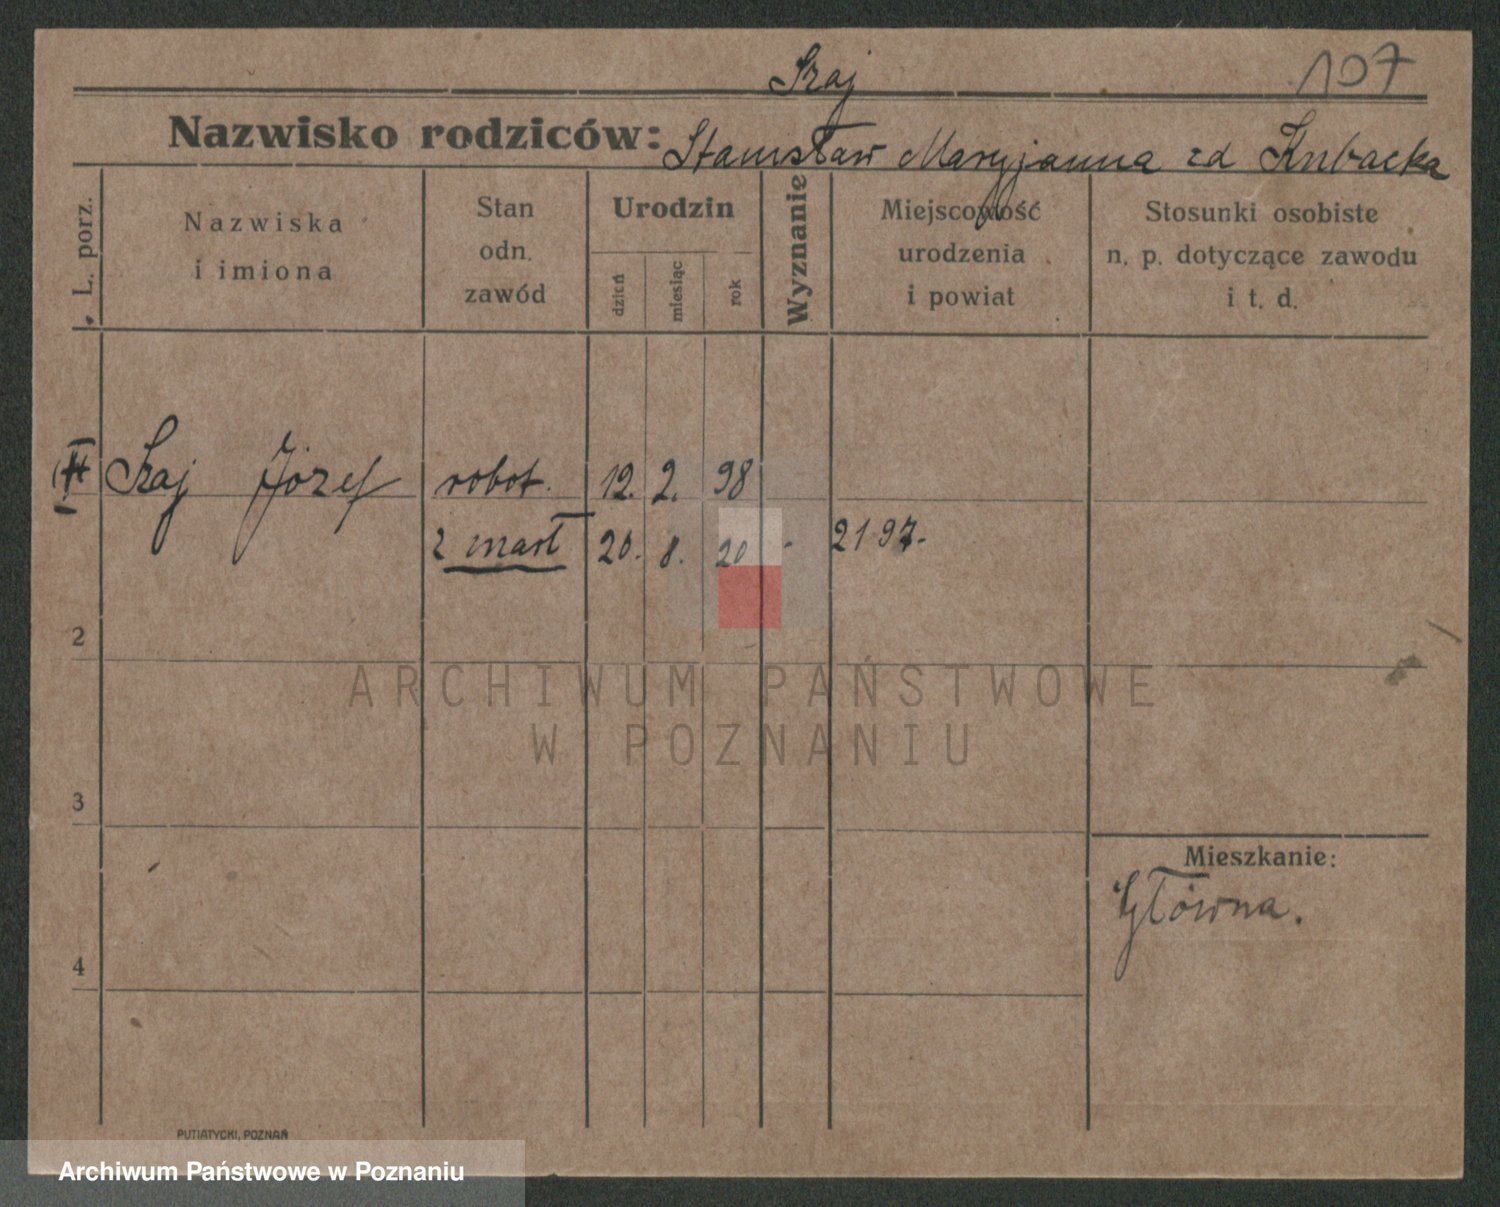 Szaj
107
Nazwisko rodziców: Stanisław Maryjanna zd Kubacka
L. porz.
Nazwiska
i imiona
Stan
odn.
zawód
Urodzin
dzień
miesiąc
rok
Wyznanie
Miejscowość
urodzenia
i powiat
Stosunki osobiste
n. p. dotyczące zawodu
i t. d.
Szaj Józef robot. 12. 2. 98
zmarł 20. 8. 20 - 2197.
2
3
4
Mieszkanie:
Główna.
ARCHIWUM PAŃSTWOWE
W POZNANIU
PUTIATYCKI, POZNAŃ
Archiwum Państwowe w Poznaniu